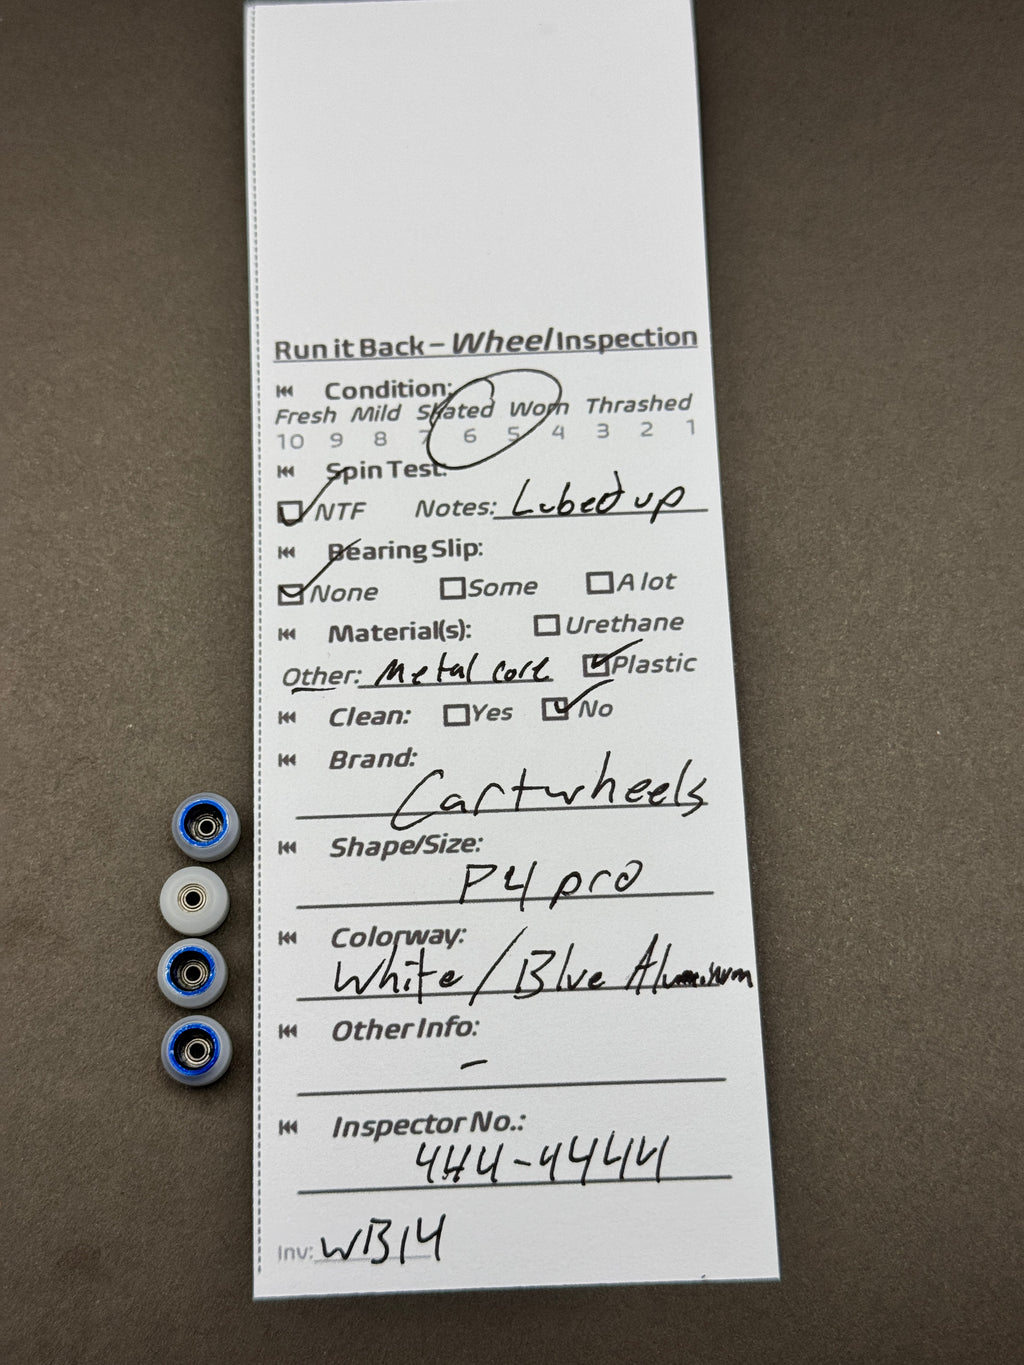 Run it Back – Wheel Inspection
Condition:
Fresh Mild Skated Worn Thrashed
10 9 8 7 6 5 4 3 2 1
Spin Test:
NTF Notes: Lubed up
Bearing Slip:
None Some A lot
Material(s): Urethane
Other: Metal core Plastic
Clean: Yes No
Brand:
Cartwheels
Shape/Size:
P4 pro
Colorway:
White/Blue Aluminum
Other Info:
-
Inspector No.:
444-4444
Inv: WB14